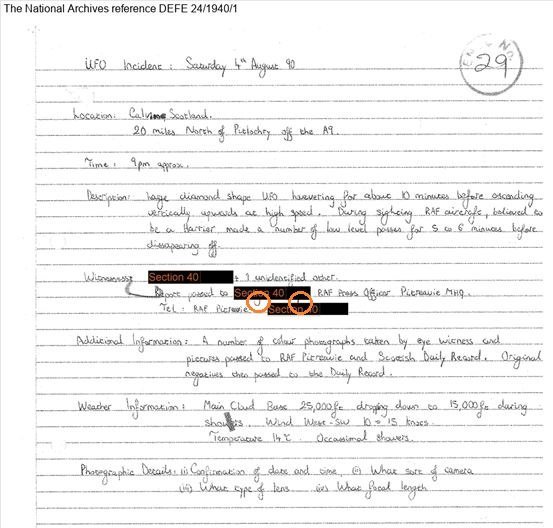 The National Archives reference DEFE 24/1940/1
29
UFO Incident : Saturday 4th August 90
Location: Calvine, Scotland.
20 miles North of Pitlochry off the A9.
Time : 9pm approx.
Description: Large diamond shape UFO hovering for about 10 minutes before ascending
vertically upwards at high speed. During sighting RAF aircraft, believed to
be a Harrier made a number of low level passes for 5 to 6 minutes before
disappearing off.
Witnesses: Section 40 + 1 unidentified other.
Report passed to Section 40 RAF Press Officer Pitreavie MHQ.
Tel: RAF Pitreavie Section 40
Additional Information: A number of colour photographs taken by eye witness and
pictures passed to RAF Pitreavie and Scottish Daily Record. Original
negatives then passed to the Daily Record.
Weather Information : Main Cloud Base 25,000ft dropping down to 15,000ft during
showers. Wind West-SW 10 - 15 knots.
Temperature 14°C. Occassional showers.
Photographic Details: (i) Confirmation of date and time, (ii) What sort of camera
(iii) What type of lens (iv) What focal length